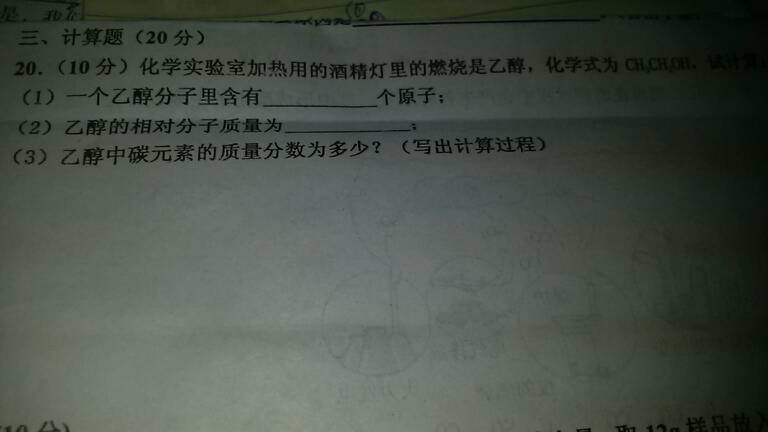 三、计算题（20 分）
20.（10 分）化学实验室加热用的酒精灯里的燃烧是乙醇，化学式为 CH₃CH₂OH。试计算
（1）一个乙醇分子里含有__________个原子；
（2）乙醇的相对分子质量为___________；
（3）乙醇中碳元素的质量分数为多少？（写出计算过程）
取 12g 样品放入